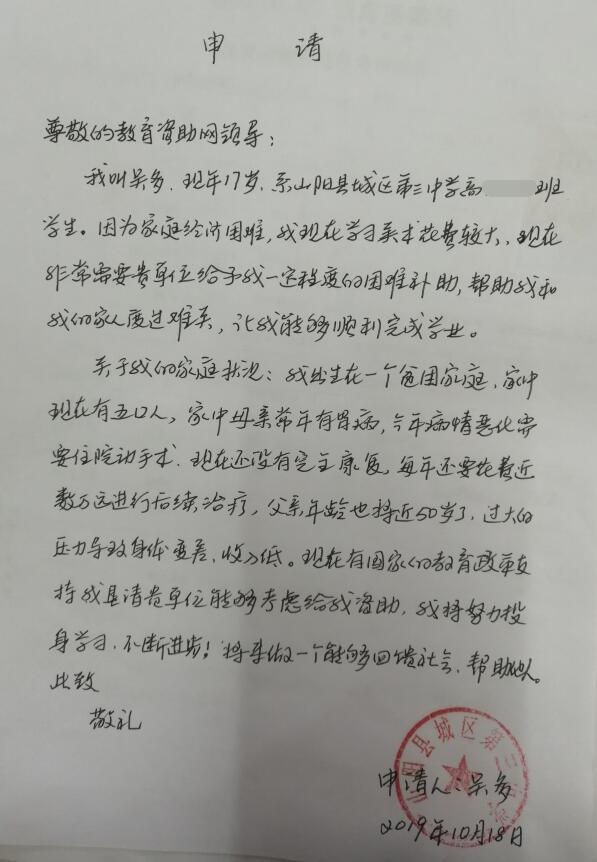 申 请
尊敬的教育资助网领导:
我叫吴多、现年17岁、系山阳县城区第三中学高 班
学生。因为家庭经济困难,我现在学习美术花费较大、现在
非常需要贵单位给予我一定程度的困难补助,帮助我和
我的家人度过难关,让我能够顺利完成学业。
关于我的家庭状况:我出生在一个贫困家庭、家中
现在有五口人,家中母亲常年有胃病,今年病情恶化需
要住院动手术、现在还没有完全康复,每年还要花费近
数万元进行后续治疗,父亲年龄也将近50岁了,过大的
压力导致身体变差、收入低。现在有国家的教育政策支
持我恳请贵单位能够考虑给我资助,我将努力投
身学习、不断进步!将来做一个能够回馈社会、帮助他人。
此致
敬礼
山阳县城区第三
申请人:吴多
2019年10月18日